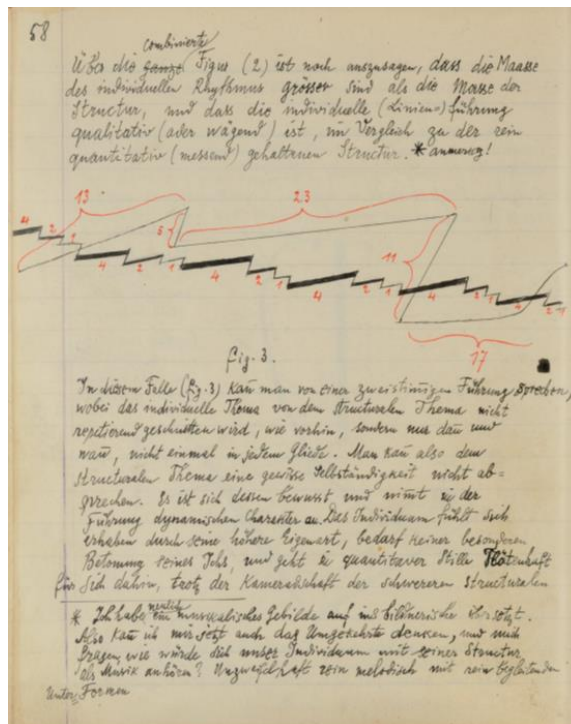 58
combinierte
Über die ganze Figur (2) ist noch auszusagen, dass die Maasse
des individuellen Rhythmus grösser sind als die Masse der
Structur, und dass die individuelle (Linien-) führung
qualitativ (oder wägend) ist, im Vergleich zu der rein
quantitativ (messend) gehaltenen Structur. * anmerkg!
13 23
4 2 2 5 11
4 2 1 4 2 1 4 2 1 4 2 1 4 2 1
17
fig. 3.
In diesem Falle (fig. 3) kañ man von einer zweistimmigen Führung sprechen,
wobei das individuelle Thema von dem structuralen Thema nicht
repetierend geschnitten wird, wie vorhin, sondern nur dañ und
wañ, nicht einmal in jedem Gliede. Man kañ also dem
structuralen Thema eine gewisse Selbständigkeit nicht ab-
sprechen. Es ist sich dessen bewusst, und nimt in der
Führung dynamischen Charakter an. Das Individuum fühlt sich
erhaben durch seine höhere Eigenart, bedarf keiner besonderen
Betonung seines Ichs, und geht in quantitaver Stille Flötenhaft
für sich dahin, trotz der Kameradschaft der schwereren structuralen
* Ich habe neulich ein musikalisches Gebilde auf ins bildnerische übersetzt.
Also kañ ich mir jetzt auch das Umgekehrte denken, und mich
fragen, wie würde sich unser Individuum mit seiner Structur
als Musik anhören? Unzweifelhaft rein melodisch mit rein begleitenden
Unter-Formen